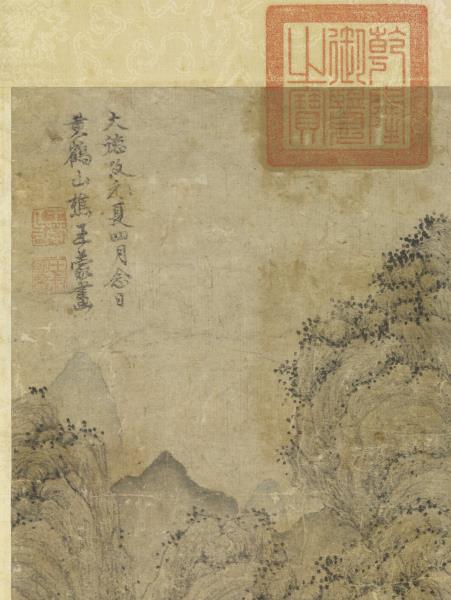 乾隆
御覽
之寶
大德改元夏四月念日
黃鶴山樵王蒙畫